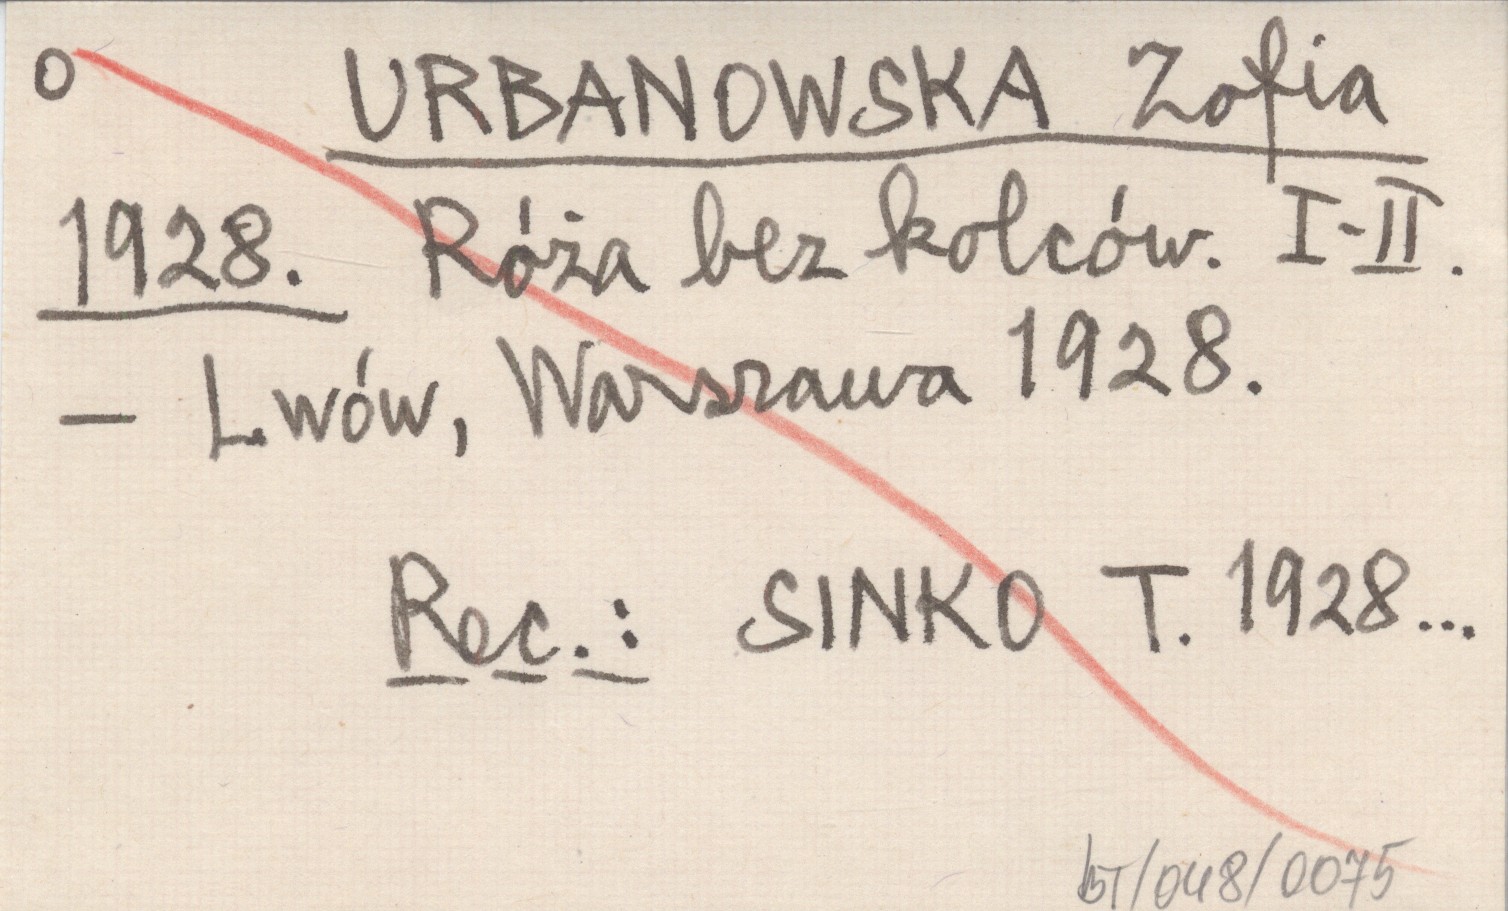 O URBANOWSKA Zofia
1928. Róża bez kolców. I-II.
– Lwów, Warszawa 1928.
Rec.: SINKO T. 1928...
bT/048/0075